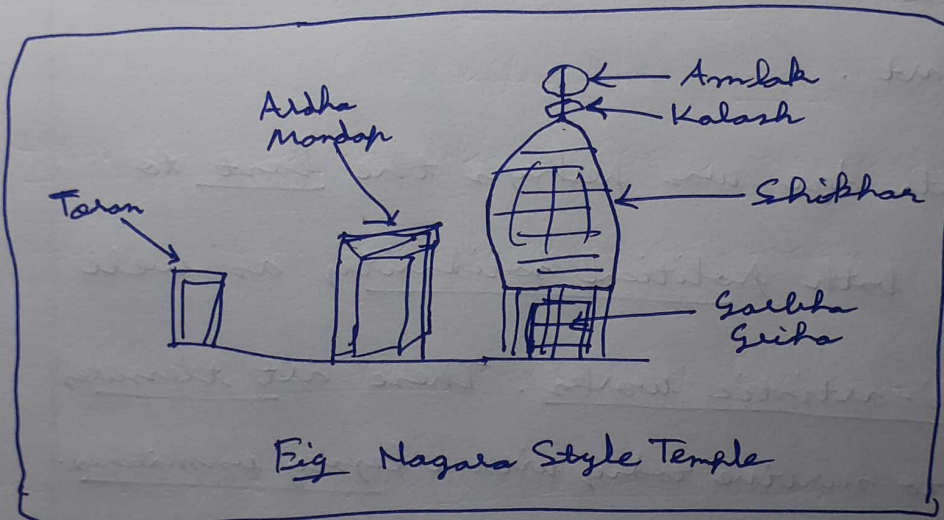 Amlak
Kalash
Ardha
Mandap
Toran
Shikhar
Garbha
Griha
Fig Nagara Style Temple